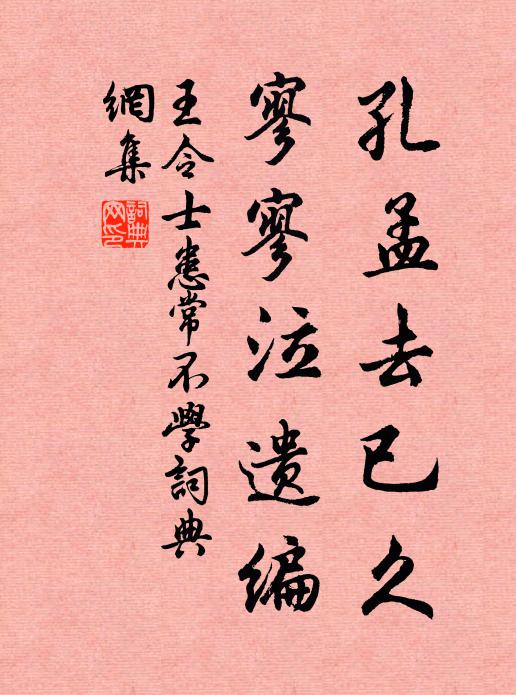 孔孟去已久
寥寥泣遗编
王令士患常不學詞典
網集
詞典網印